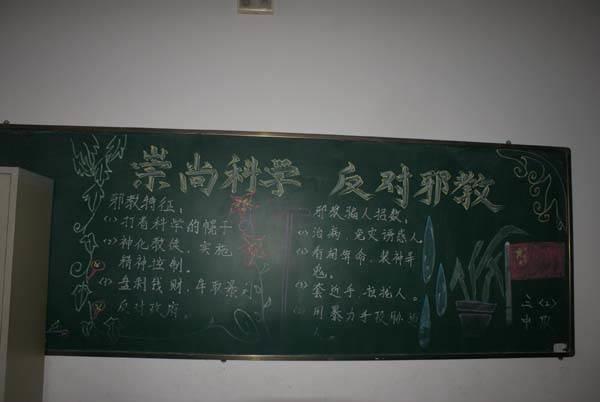 崇尚科学 反对邪教
邪教特征:
(1) 打着科学的幌子
(2) 神化教徒、实施
精神控制。
(3) 盘剥钱财,牟取暴利
反对政府。
邪教骗人招数:
(1) 治病,免灾诱惑人
(2) 看相算命,装神弄
鬼。
(3) 套近乎,拉拢人。
(4) 用暴力手段胁迫
人